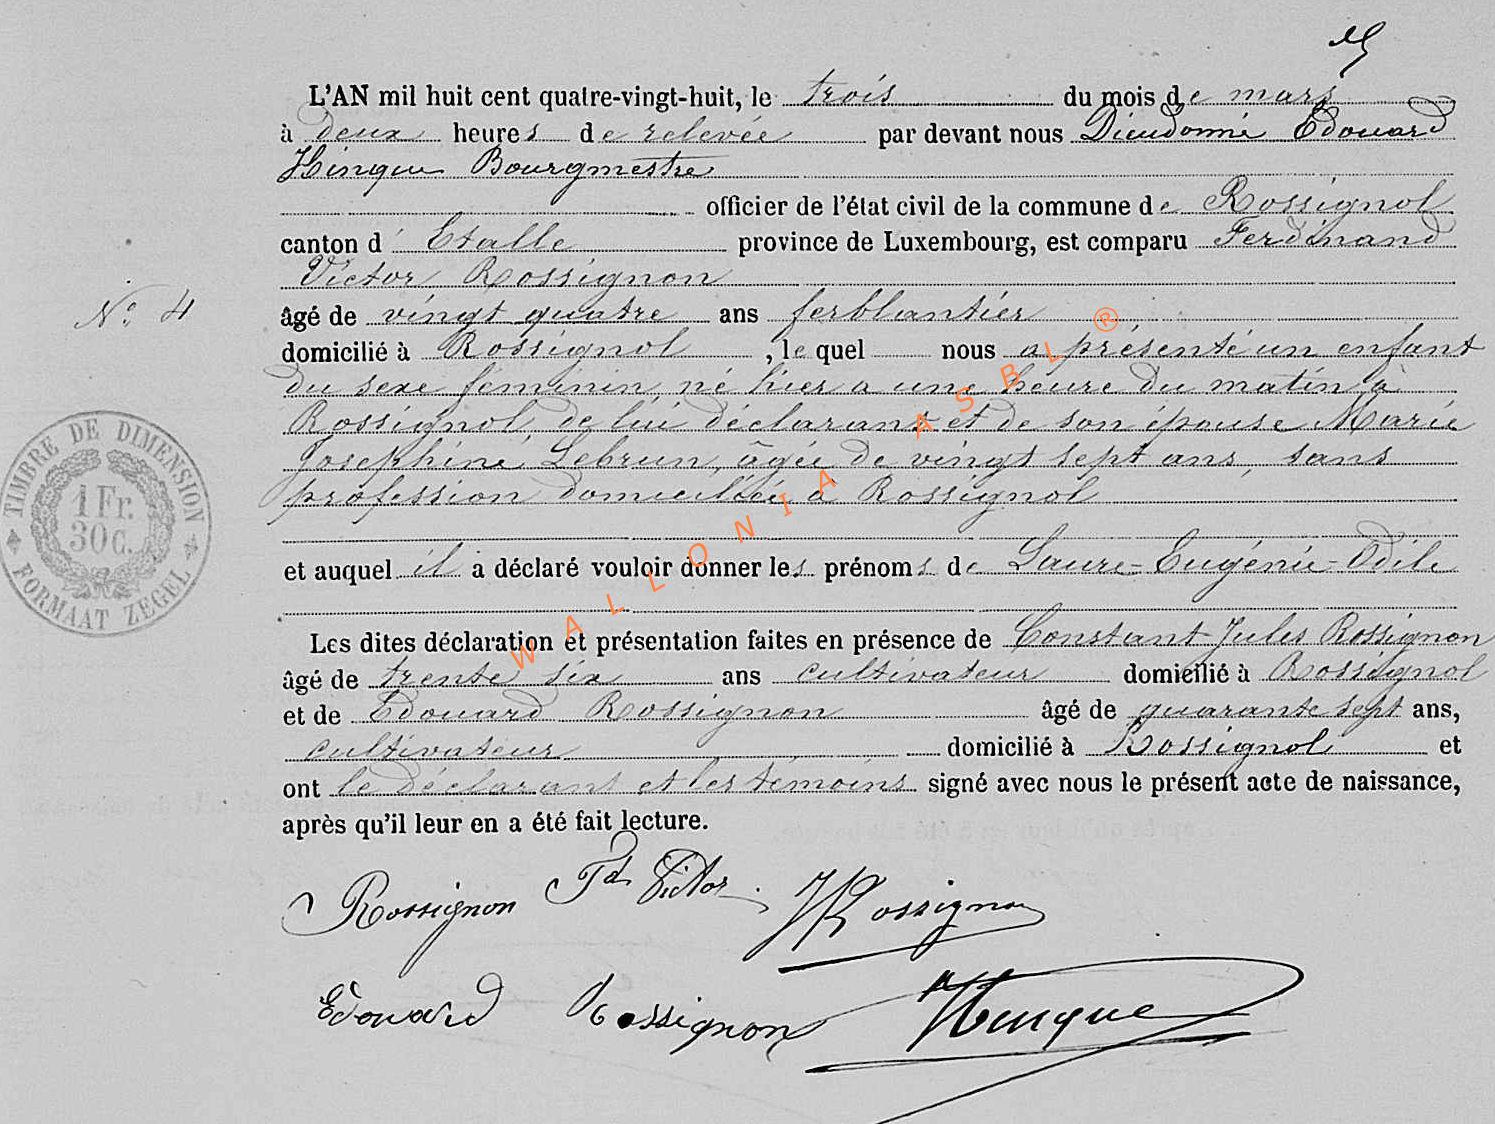 L'AN mil huit cent quatre-vingt-huit, le trois du mois de mars
à deux heures de relevée par devant nous Dieudonné Edouard
Hinque Bourgmestre
officier de l'état civil de la commune de Rossignol
canton d' Etalle province de Luxembourg, est comparu Ferdinand
Victor Rossignon
âgé de vingt quatre ans ferblantier
N° 4
domicilié à Rossignol , le quel nous a présenté un enfant
du sexe féminin, né hier a une heure du matin à
Rossignol, de lui déclarant et de son épouse Marie
Josephine Lebrun, âgée de vingt sept ans, sans
profession domiciliée à Rossignol
TIMBRE DE DIMENSION
1 Fr.
30 C.
FORMAAT ZEGEL
et auquel il a déclaré vouloir donner les prénoms de Laure-Eugénie-Odile
Les dites déclaration et présentation faites en présence de Constant Jules Rossignon
âgé de trente six ans cultivateur domicilié à Rossignol
et de Edouard Rossignon âgé de quarante sept ans,
cultivateur domicilié à Rossignol et
ont le déclarant et les témoins signé avec nous le présent acte de naissance,
après qu'il leur en a été fait lecture.
Rossignon Fd Victor. JRossignon
Edouard Rossignon Hinque
WALLONIA ASBL ®